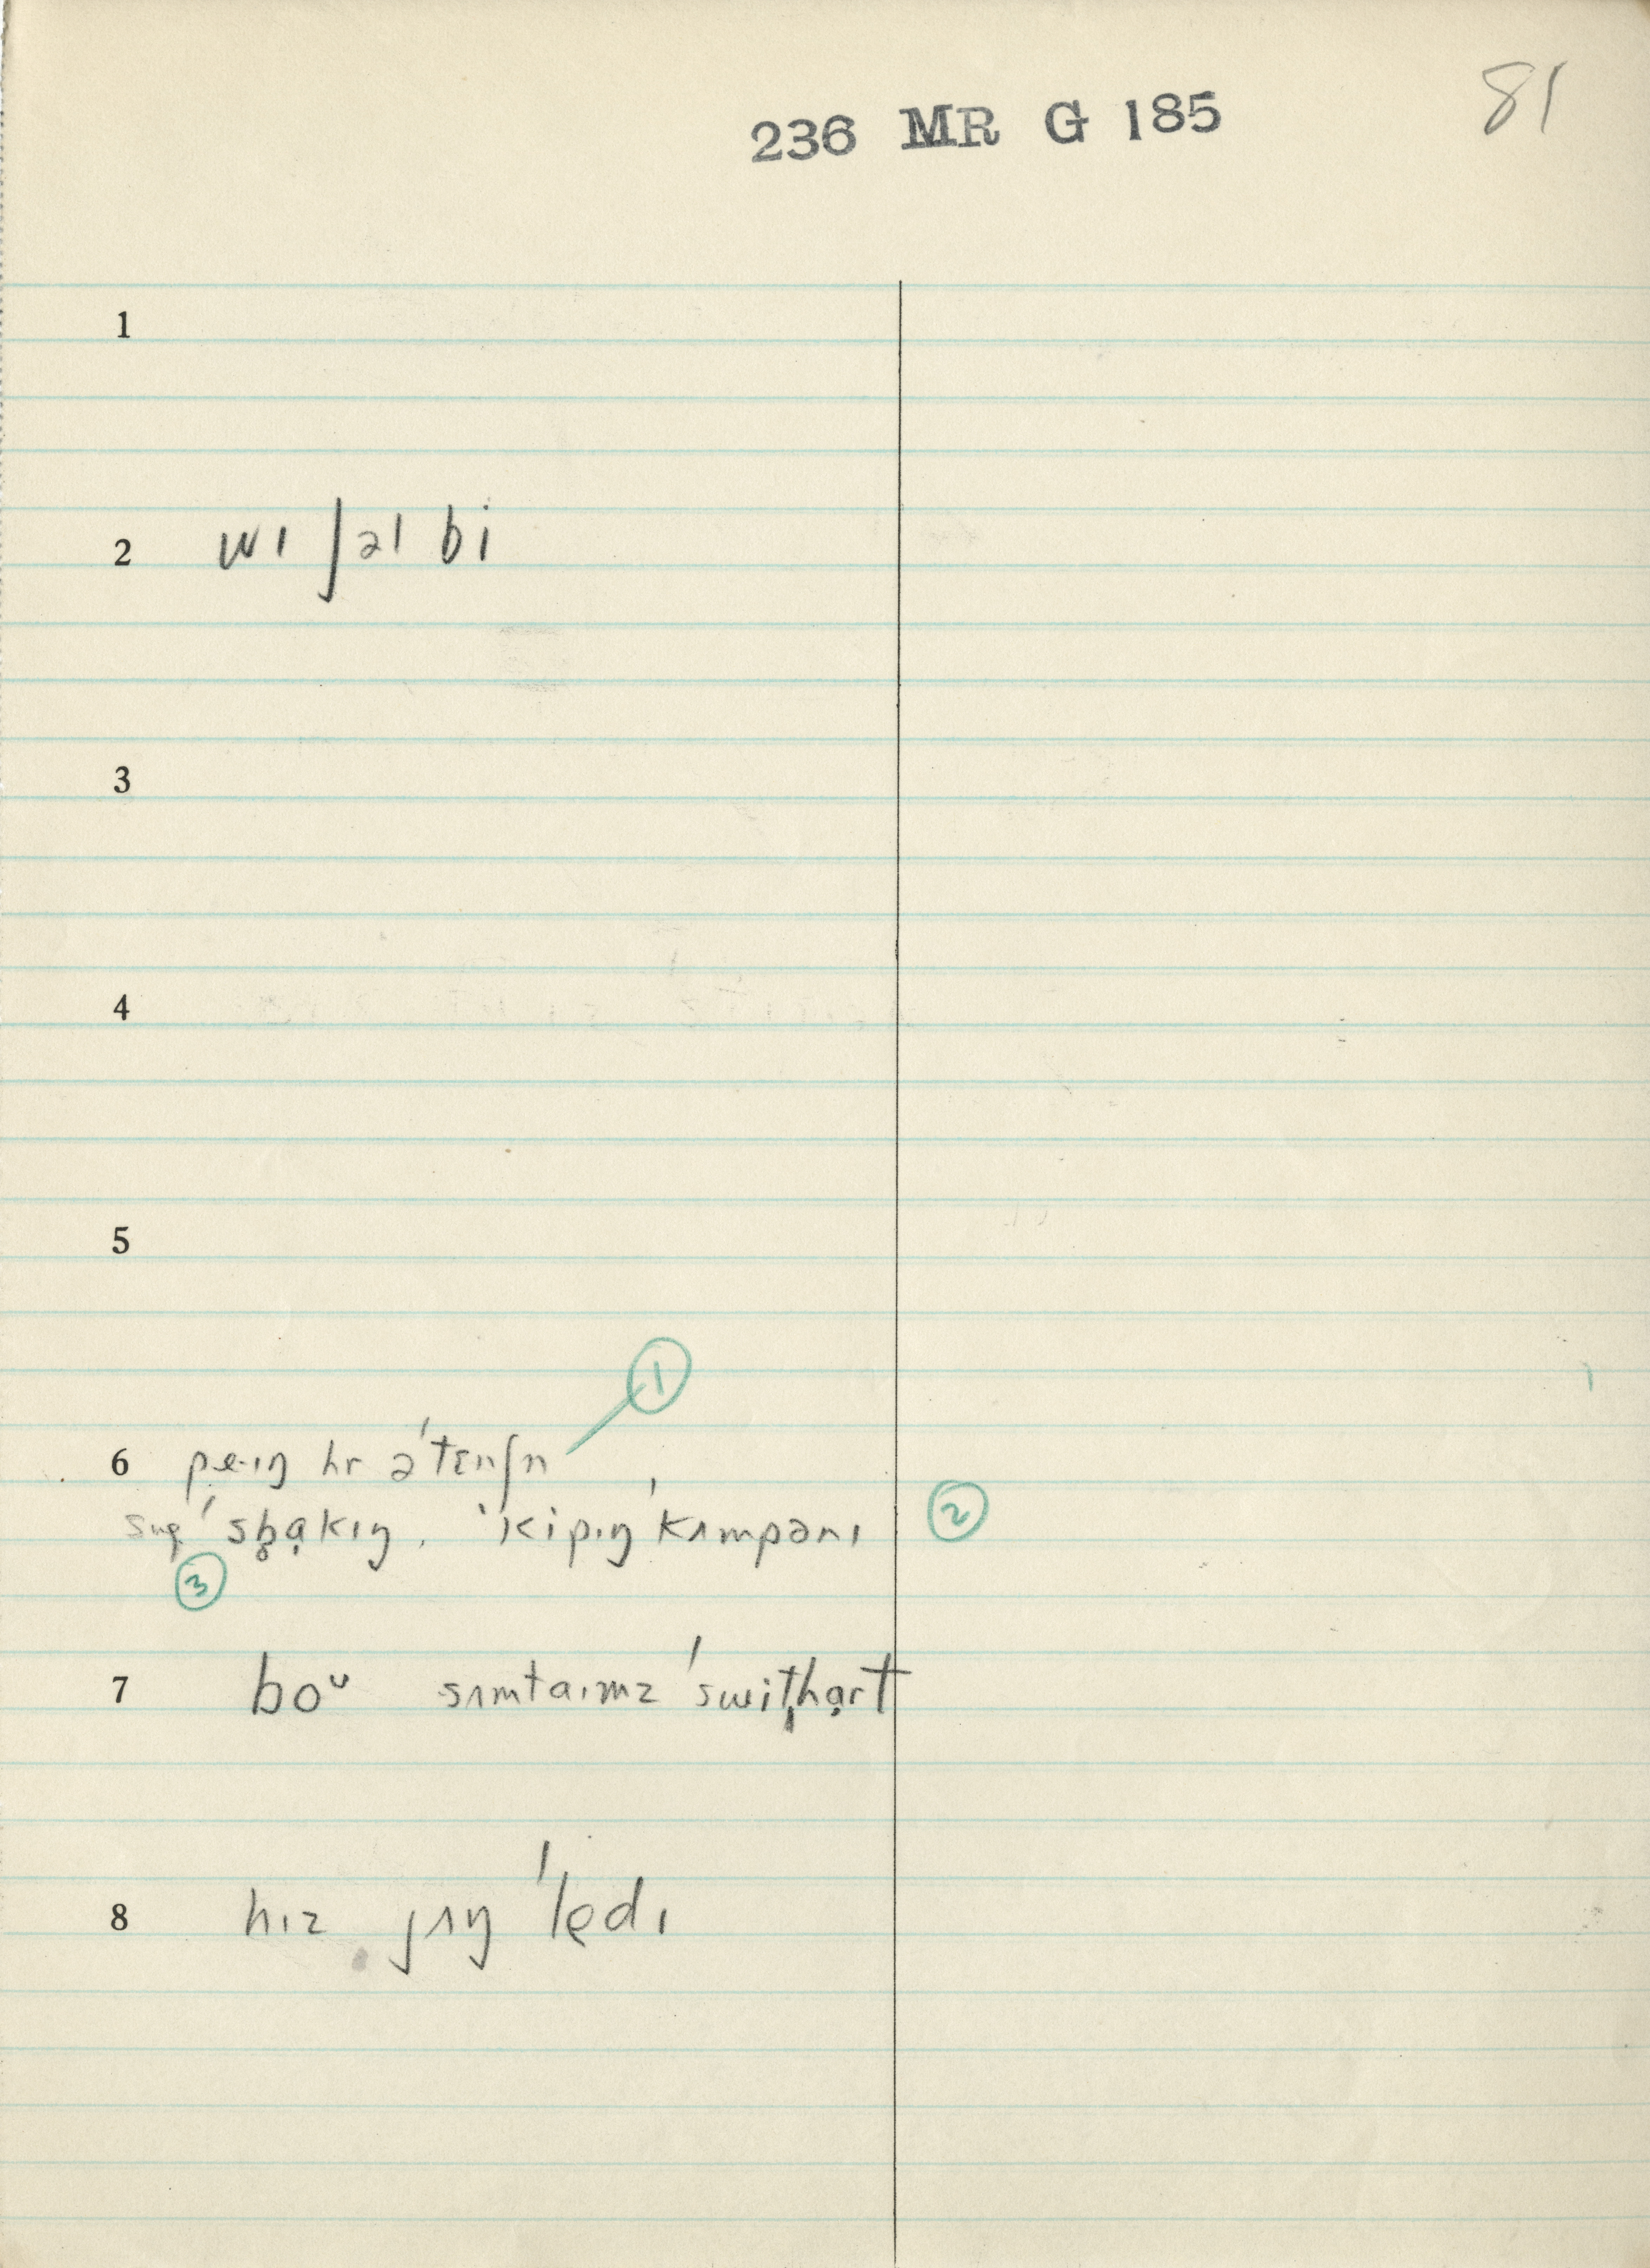 236 MR G 185
81
1
2 wɪ ʃəl bi
3
4
5
①
6 pe·ɪŋ hr ə'tɛnʃn
'sb̥ạkɪŋ. 'kipɪŋ 'kʌmpənɪ ②
③
7 boᴜ sʌmtaɪmz 'swit̬hạrt
8 hɪz jʌŋ 'lędɪ